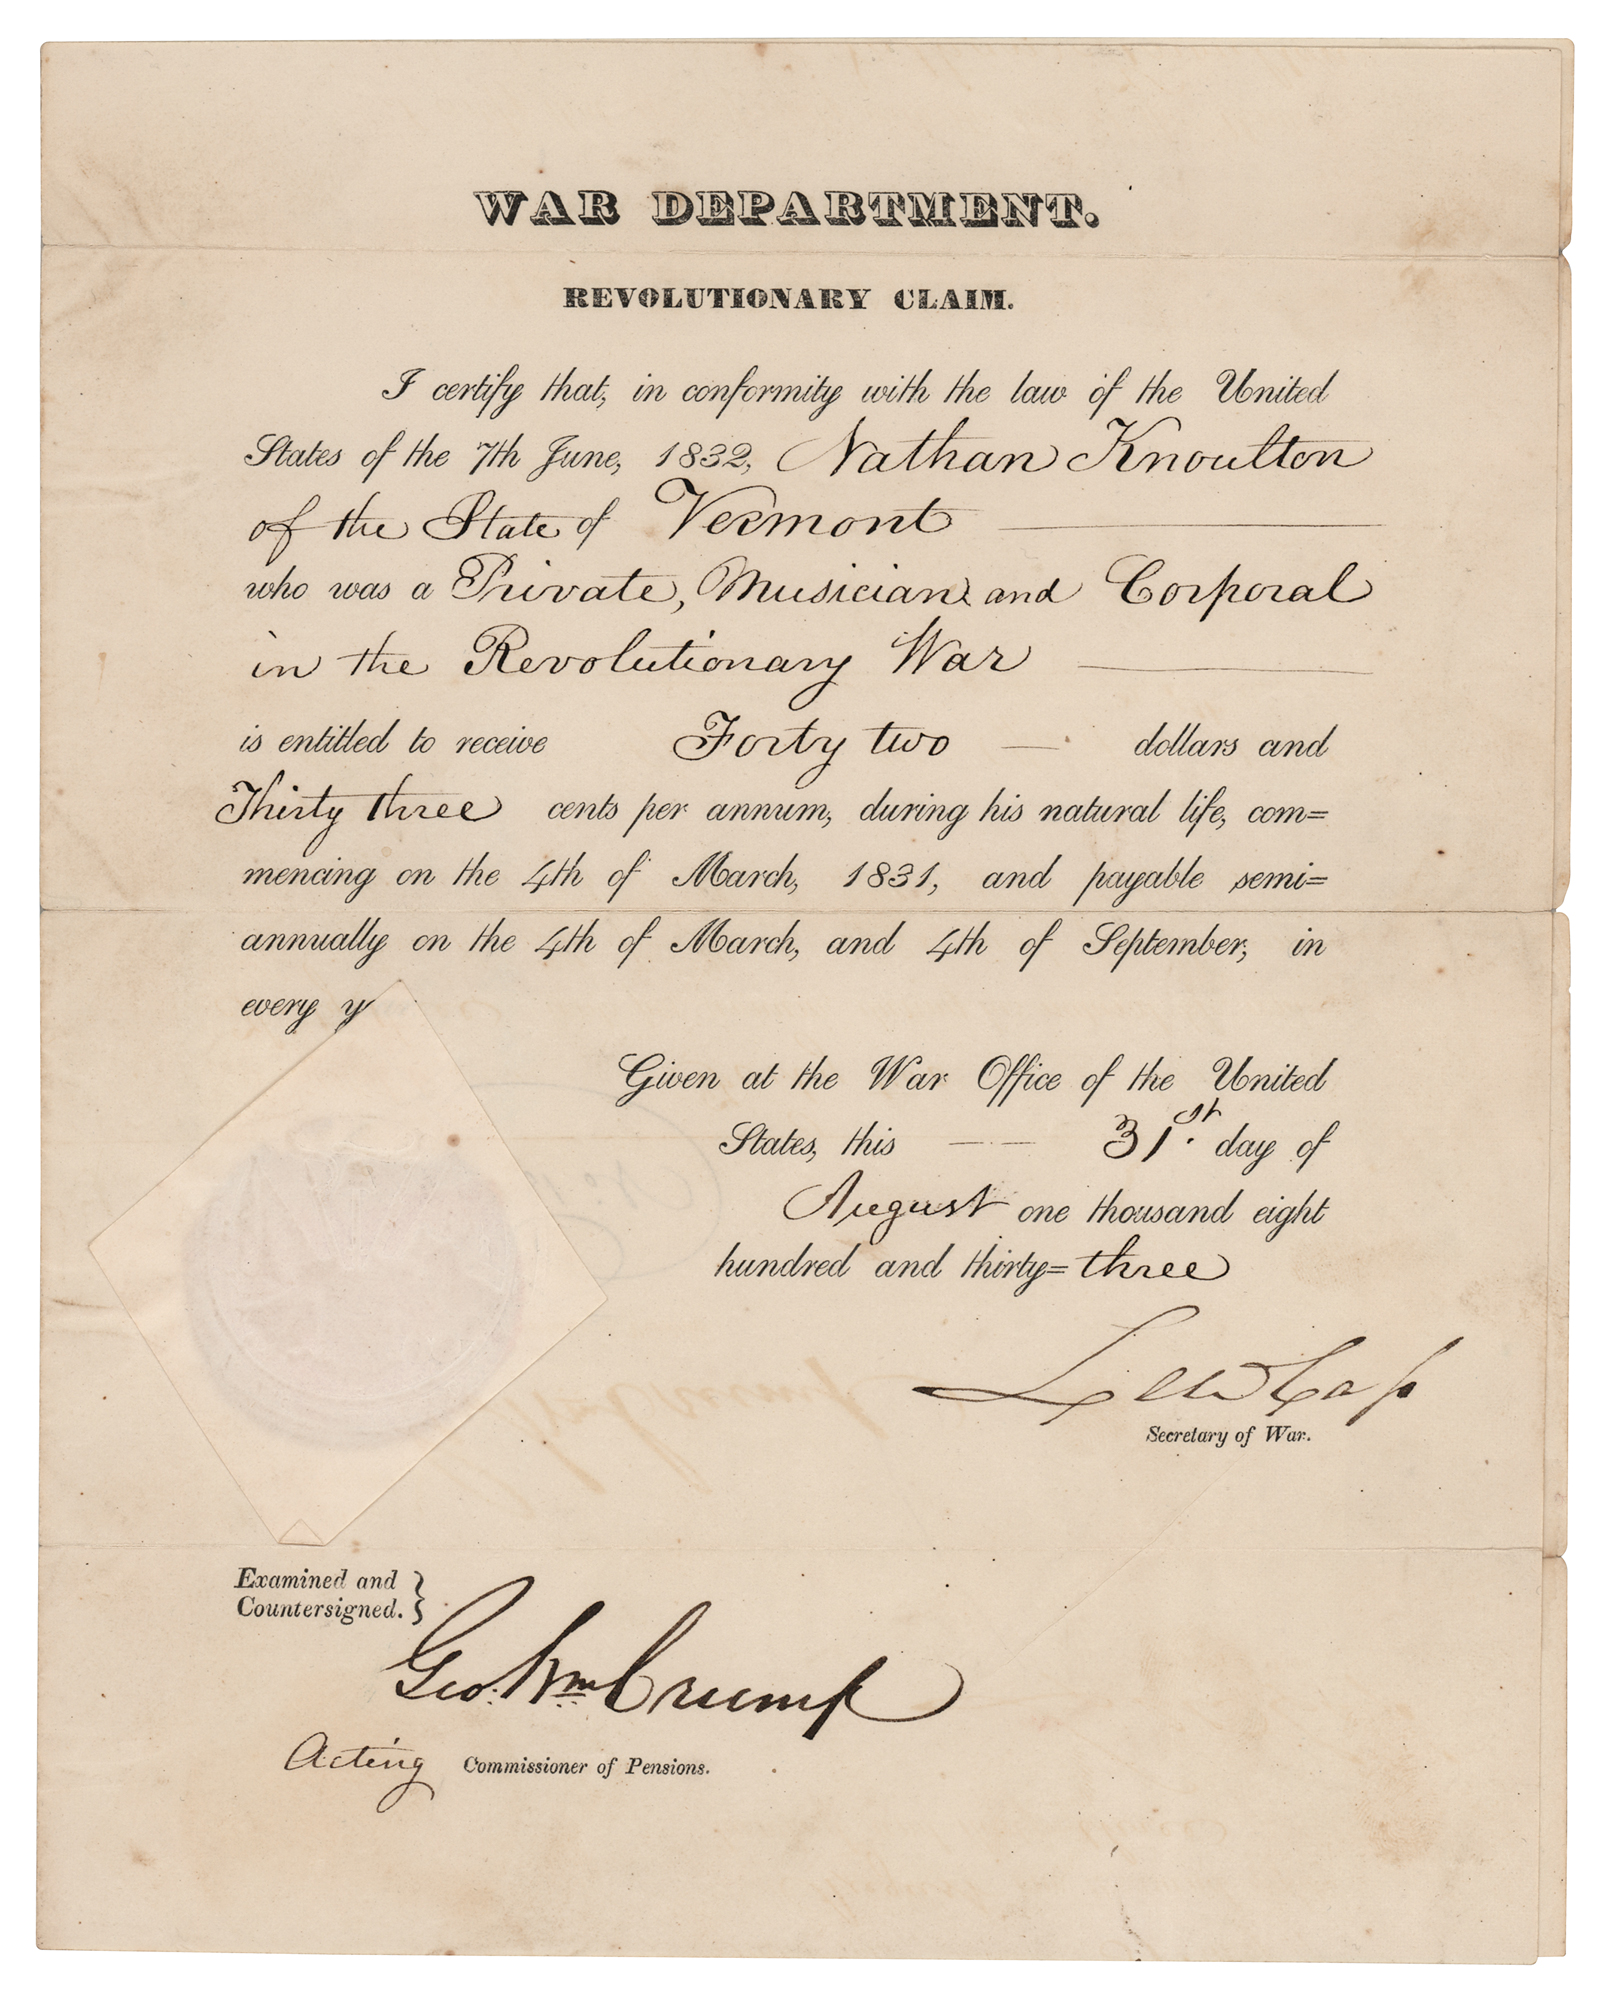 WAR DEPARTMENT.
REVOLUTIONARY CLAIM.
I certify that, in conformity with the law of the United
States of the 7th June, 1832, Nathan Knoulton
of the State of Vermont
who was a Private, Musician and Corporal
in the Revolutionary War
is entitled to receive Forty two dollars and
Thirty three cents per annum, during his natural life, com=
mencing on the 4th of March, 1831, and payable semi=
annually on the 4th of March, and 4th of September, in
every y
Given at the War Office of the United
States, this 31st. day of
August one thousand eight
hundred and thirty=three
Lew Cass
Secretary of War.
Examined and
Countersigned.
Geo. Wm Crump
Acting Commissioner of Pensions.